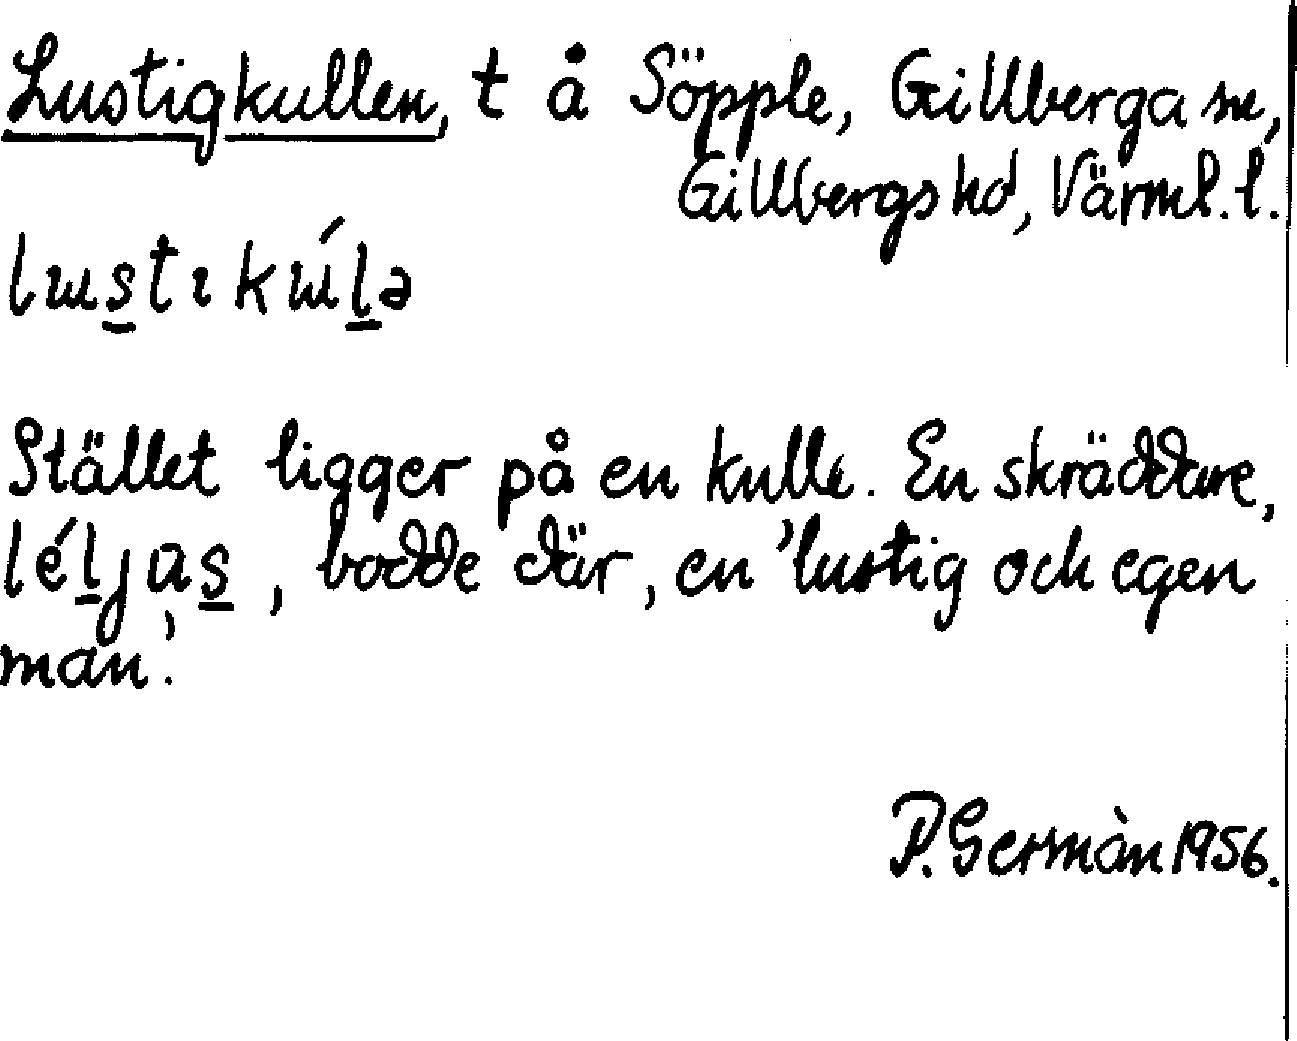 Lustigkullen, t å Söpple, Gillberga sn,
Gillbergs hd, Värml. l.
lɯs̲tɩkɯ́l̲ə
Stället ligger på en kulle. En skräddare,
lél̲jas̲, bodde där, en 'lustig och egen
man'.
P. Germàn 1956.